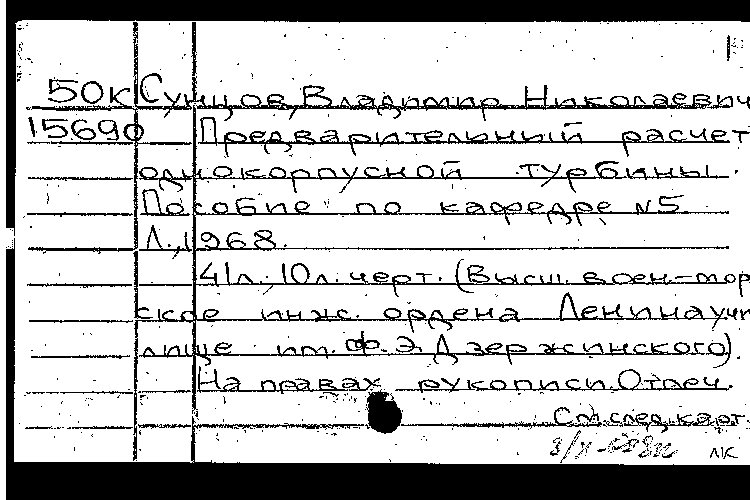 50к Сунцов, Владимир Николаевич
15690 Предварительный расчет
однокорпусной турбины.
Пособие по кафедре №5.
Л., 1968.
41л.; 10л. черт. (Высш. воен.-мор
ское инж. ордена Ленина учи
лище им. Ф.Э. Дзержинского).
На правах рукописи. Отпеч.
См. след. карт.
ЛК